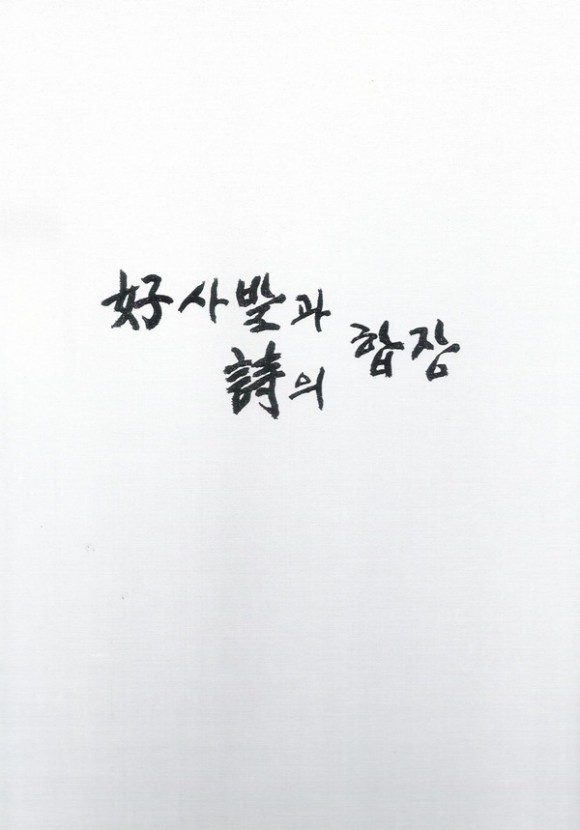 好사발과
詩의
합장